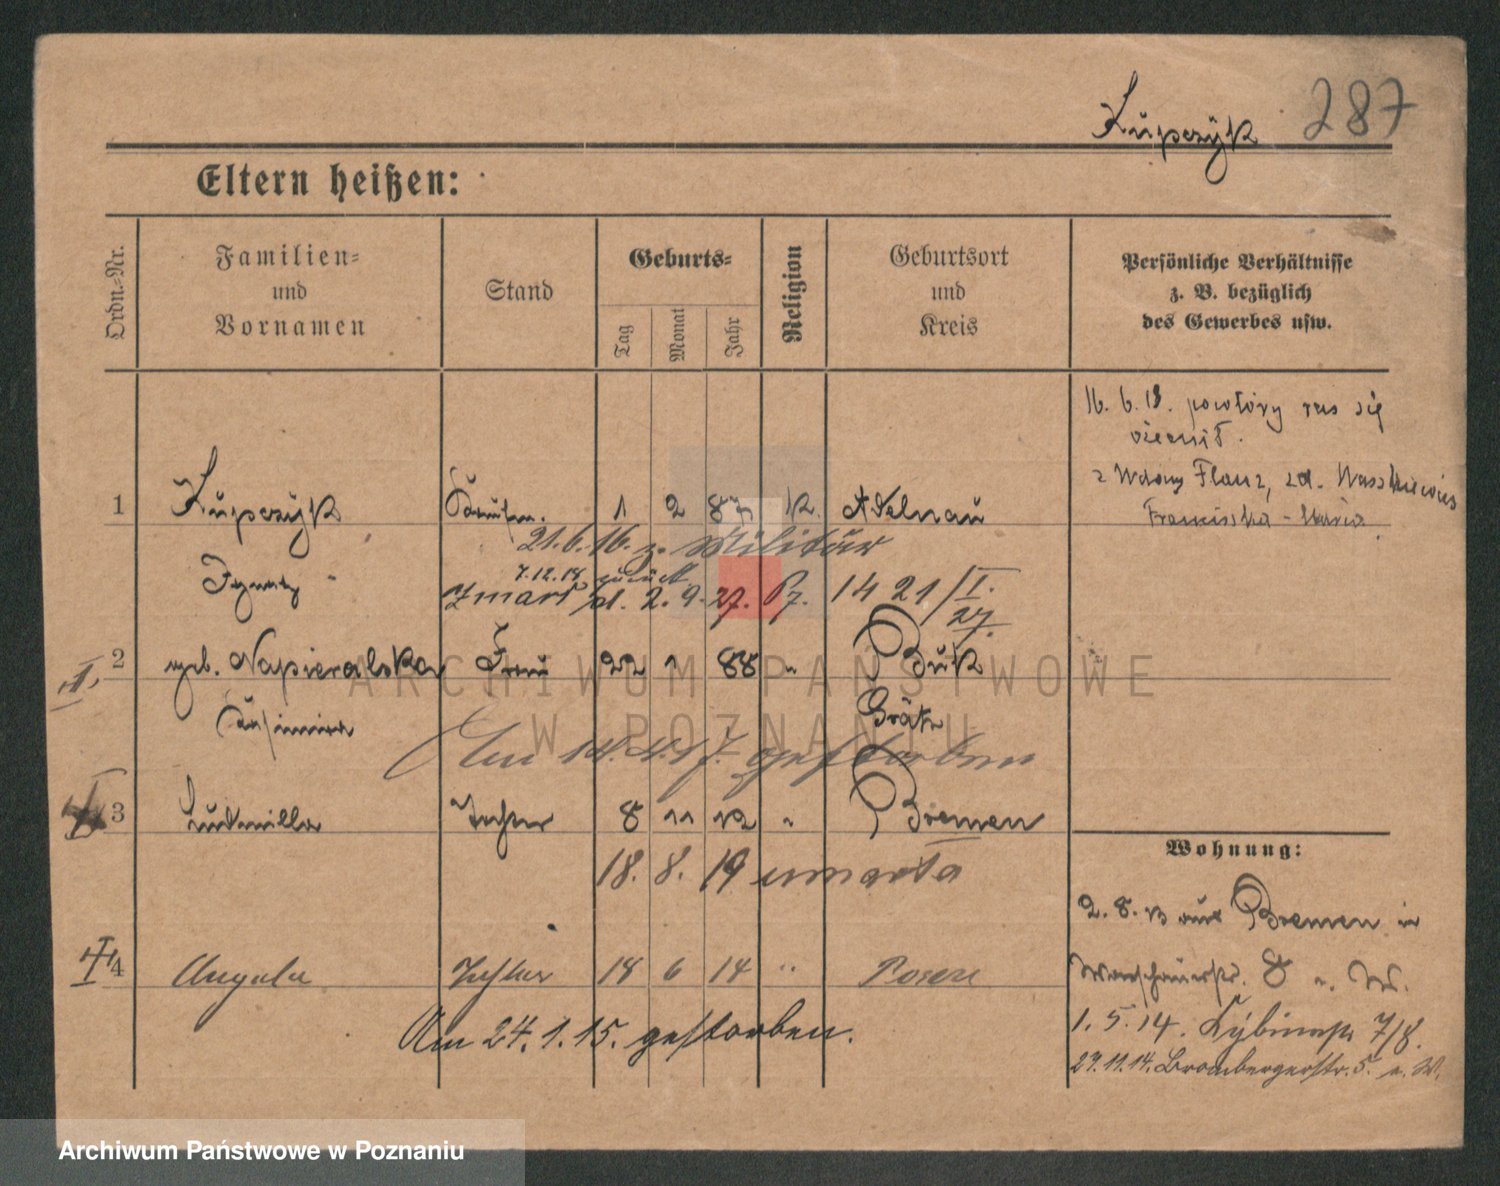 287
Kupczÿk
Eltern heißen:
Ordn.-Nr.
Familien-
und
Vornamen
Stand
Geburts-
Tag
Monat
Jahr
Religion
Geburtsort
und
Kreis
Persönliche Verhältnisse
z. B. bezüglich
des Gewerbes usw.
16. 6. 18. powtórny raz się
ożenił.
z Wdową Flanz, zd.
Franciszka - Maria
1 Kupczÿk 1 2 87 k. Adelnau
21.6.16. z. Militär
Ignatz
7.12.18. zurück
zmarł dt. 2. 9. 27. P7. 1421/I.
27.
2 geb. Napieralska Frau 22 1 88 " Buk
Kasimira Grätz
Am 14.4.17. gestorben
3 Ludmilla Tochter 8 11 12 " Bremen
18. 8. 19 umarła
Wohnung:
2. 8. 13 aus Bremen in
4 Angela Tochter 18 6 14 " Posen
Warschauerstr. 8 b. W.
Am 24.1.15. gestorben.
1. 5. 14. 7/8.
27.11.14. Brombergerstr. 5. b. W.
ARCHIWUM PAŃSTWOWE
W POZNANIU
Archiwum Państwowe w Poznaniu